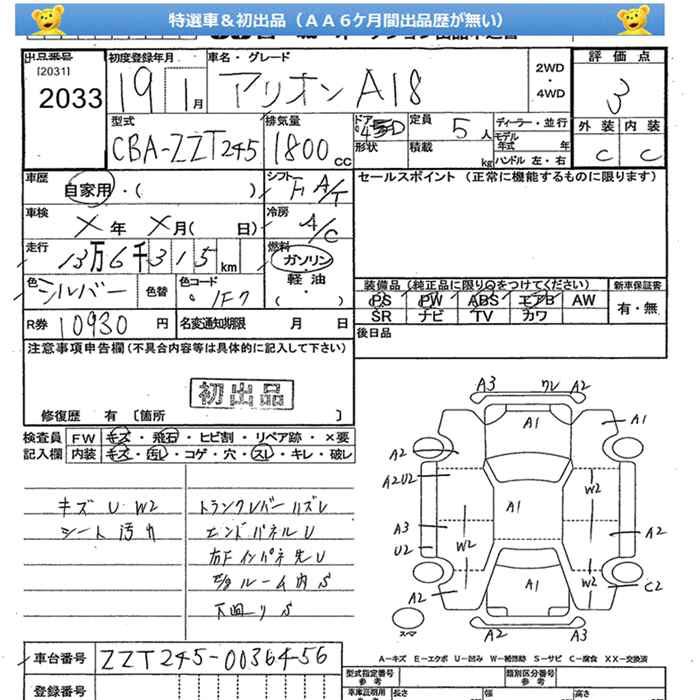 特選車＆初出品（ＡＡ６ケ月間出品歴が無い）
出品番号
[2031]
2033
初度登録年月
19 1月
車名・グレード
アリオン A18
2WD
・
4WD
評価点
3
外装 内装
C C
型式
CBA-ZZT245
排気量
1800 cc
ドア
形状
定員 5人
積載 kg
ディーラー・並行
モデル
年式 年
ハンドル 左・右
車歴
自家用・( )
シフト
F AT
セールスポイント（正常に機能するものに限ります）
車検
X年 X月( 日)
冷房
A/C
走行
13万6千315km
燃料
ガソリン
軽油
( )
色
シルバー
色替
色コード
1F7
装備品（純正品に限り○をつけてください）
新車保証書
PS PW ABS エアB AW
SR ナビ TV カワ
有・無
R券 10930円
名変通知期限 月 日
後日品
注意事項申告欄（不具合内容等は具体的に記入して下さい）
初出品
修復歴 有〔箇所 〕
検査員
記入欄
FW キズ・飛石・ヒビ割・リペア跡・×要
内装 キズ・汚れ・コゲ・穴・スレ・キレ・破レ
キズ U W2
シート汚れ
トランクレバーハズレ
エンドパネルU
右Fインパネ先U
ルーム内S
下回りS
A3 ワレ A2
A1 A1
A2
A2U2
W2
A1
A3
U2
W2
A2
A1
W2
A2
C2
スマ
A2 A3
A－キズ E－エクボ U－凹み W－補修跡 S－サビ C－腐食 XX－交換済
車台番号
ZZT245-0036456
登録番号
型式指定番号
参考
類別区分番号
参考
車庫証明用
長さ 幅 高さ